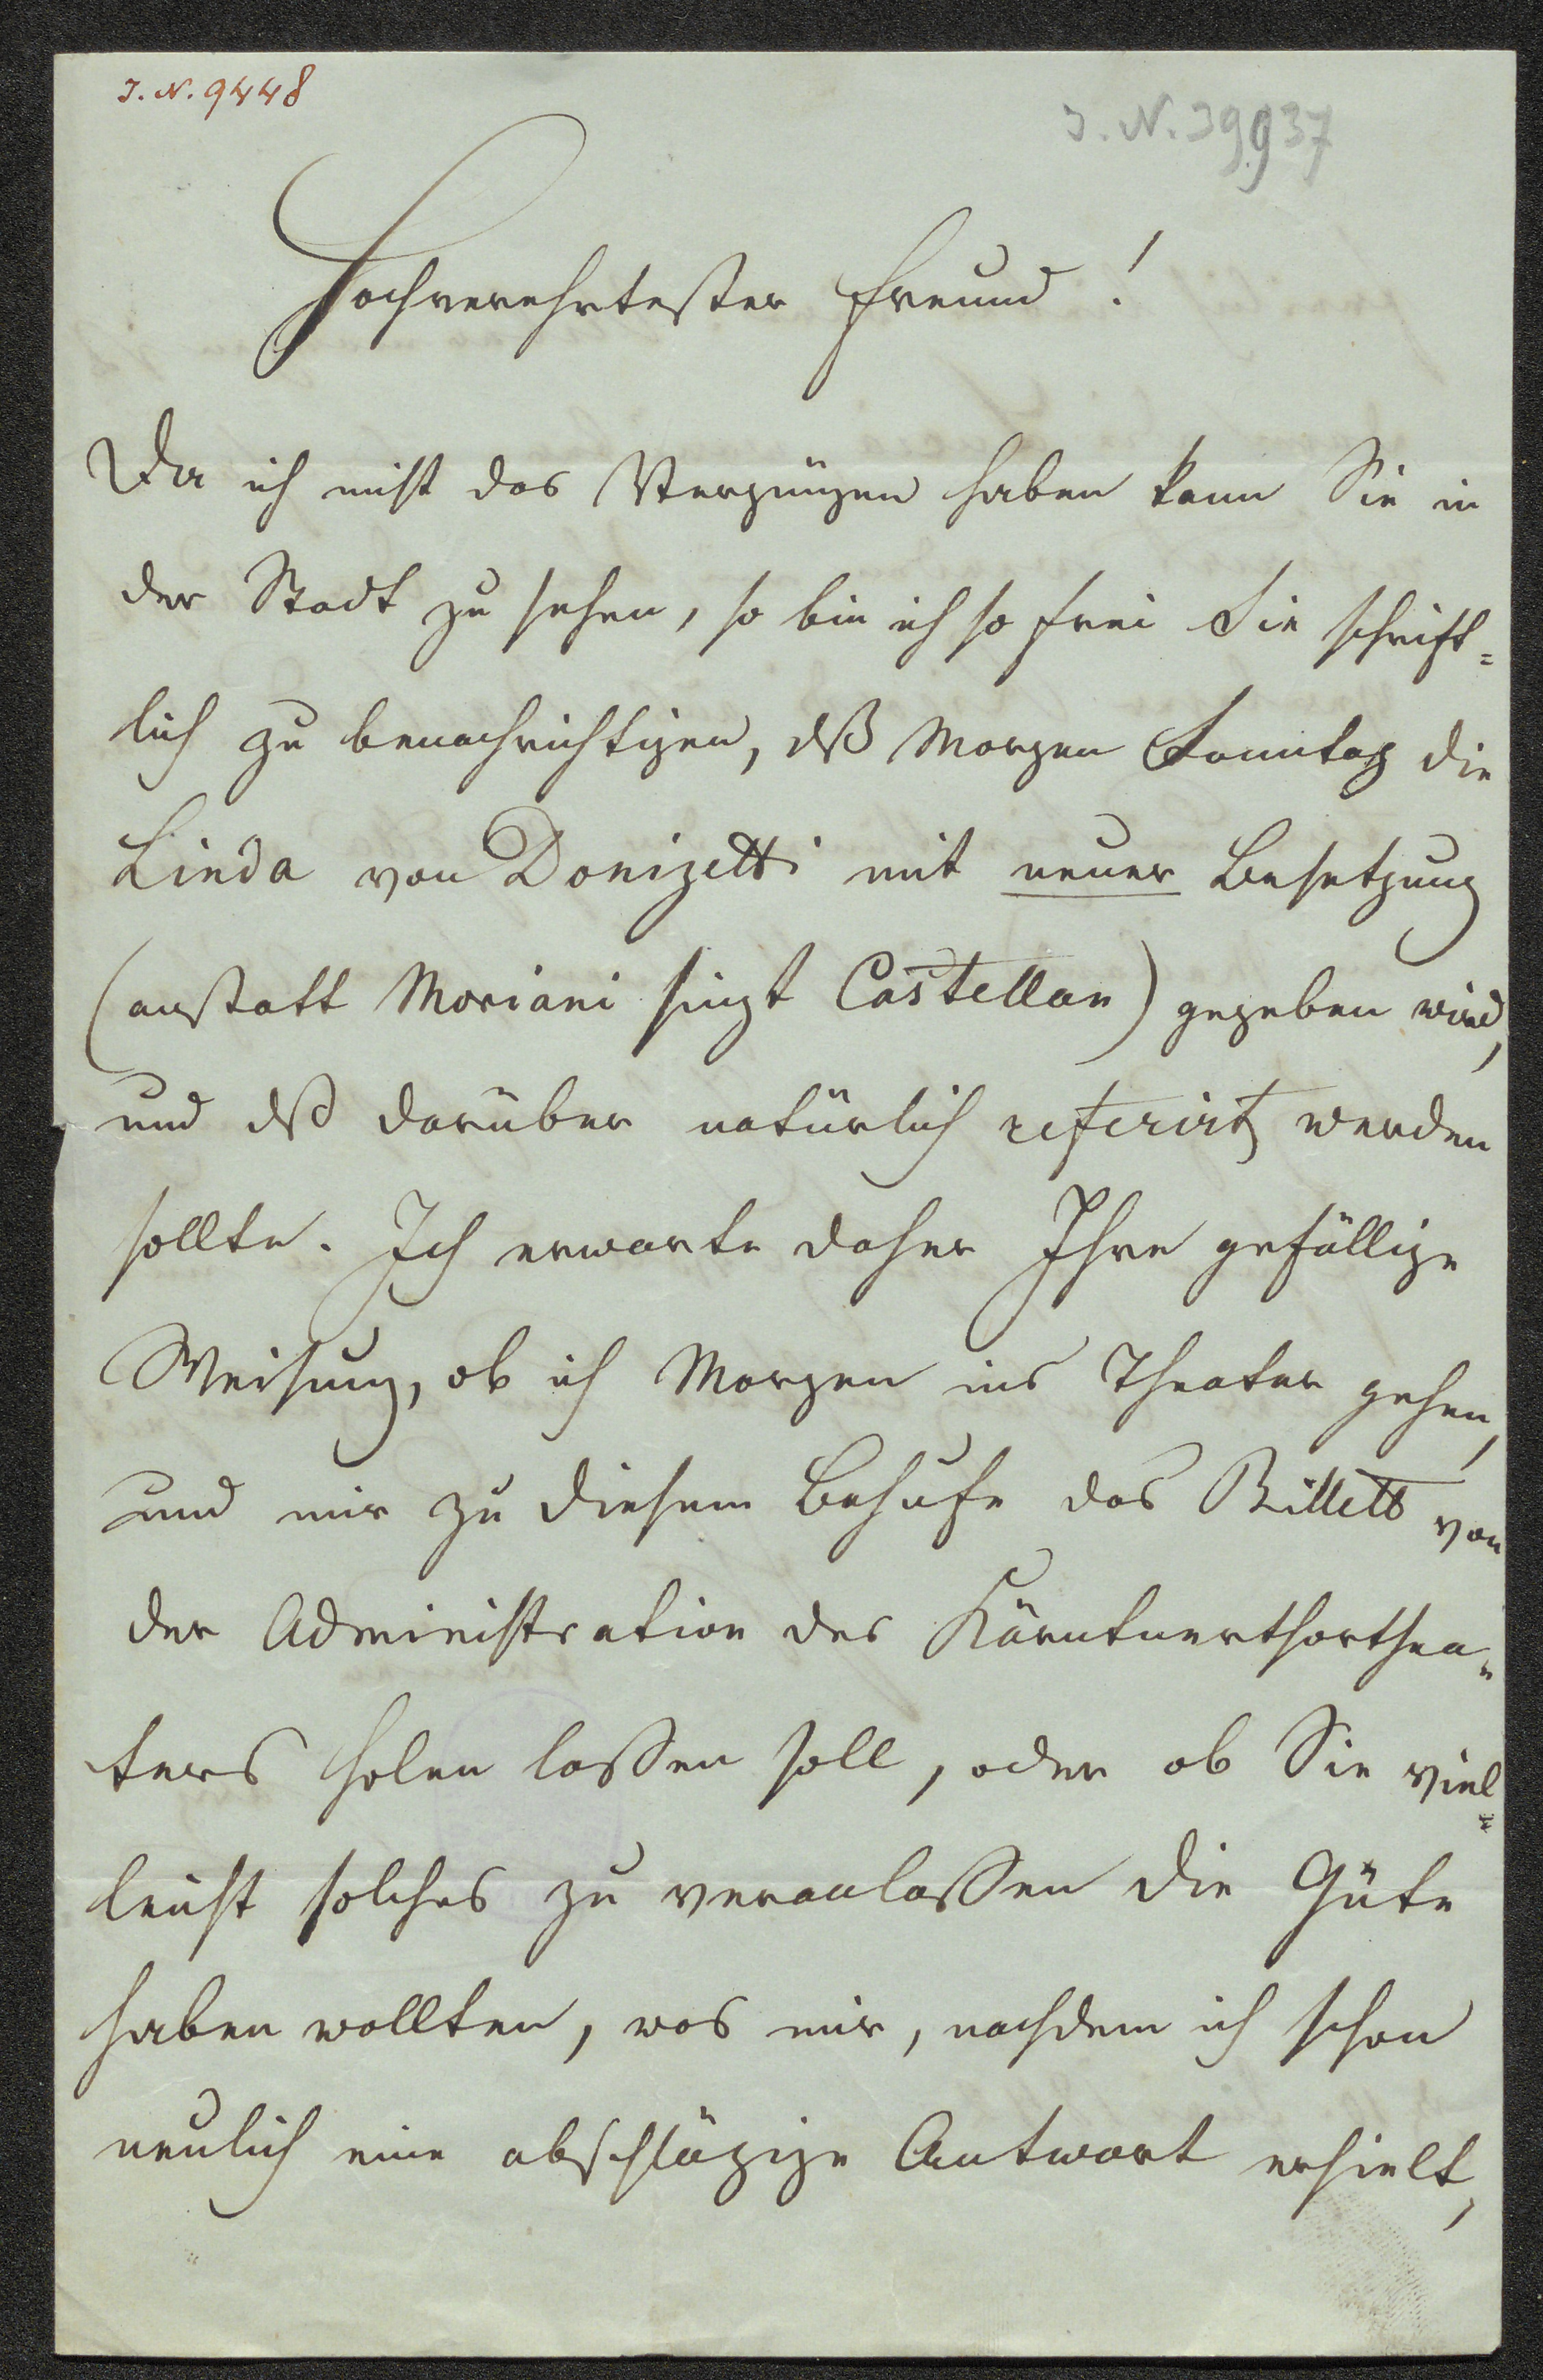 I. N. 9448
I. N. 39937
Hochverehrtester Freund!
Da ich nicht das Vergnügen haben kann Sie in
der Stadt zu sehen, so bin ich so frei Sie schrift=
lich zu benachrichtigen, dß Morgen Sonntag die
Linda von Donizetti mit neuer Besetzung
(anstatt Moriani singt Castellan) gegeben wird,
und dß darüber natürlich referirt werden
sollte. Ich erwarte daher Ihre gefällige
Weisung, ob ich Morgen ins Theater gehen,
und mir zu diesem Behufe das Billett von
der Administration des Kärntnerthorthea=
ters holen lassen soll, oder ob Sie viel=
leicht solches zu veranlassen die Güte
haben wollten, was mir, nachdem ich schon
neulich eine abschlägige Antwort erhielt,